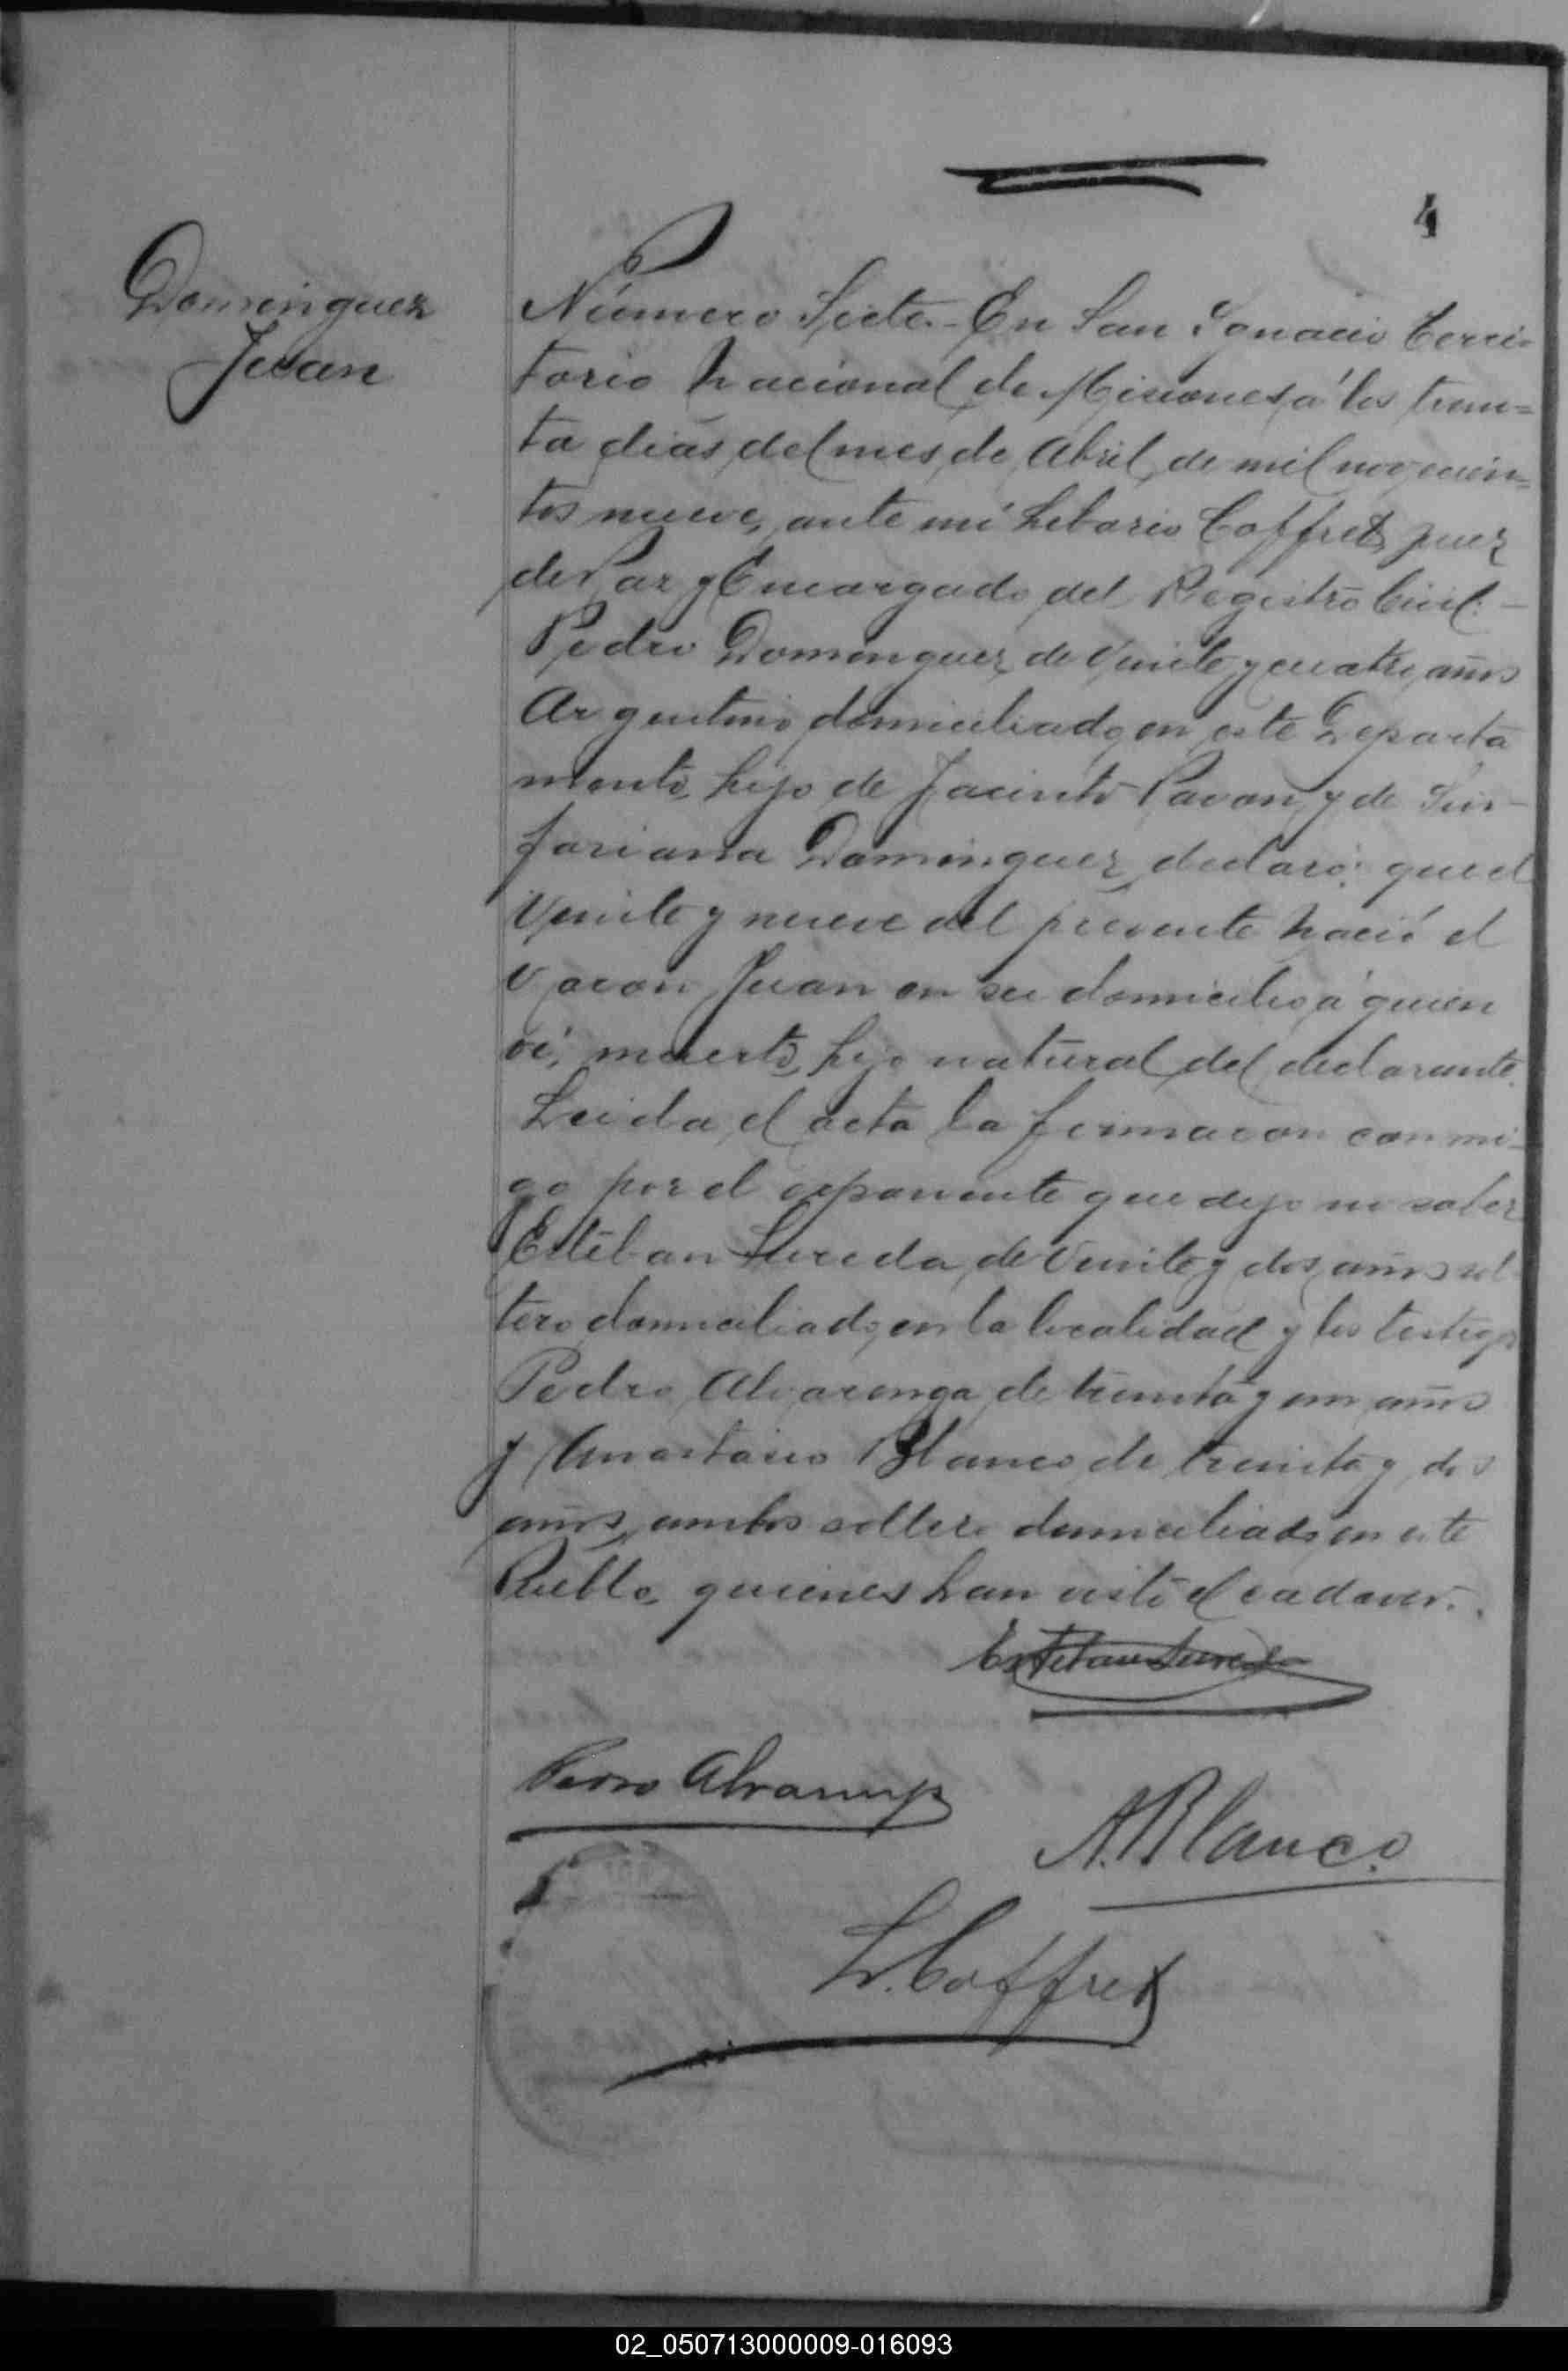 4
Dominguez
Juan
Número Siete.- En San Ignacio Terri-
torio Nacional de Misiones á los trein=
ta dias del mes de Abril de mil novecien=
tos nueve, ante mi Liborio Coffret, Juez
de Paz y Encargado del Registro Civil:-
Pedro Dominguez, de Veinte y cuatro años
Argentino domiciliado en este Departa
mento, hijo de Jacinto Pavon y de Sin-
foriana Dominguez, declaró: que el
Veinte y nueve del presente nació el
Varon Juan en su domicilio á quien
ví, muerto, hijo natural del declarante.
Leida el acta la firmaron conmi-
go por el esponente que dijo no saber
Esteban Lureda de Veinte y dos años sol
tero domiciliado en la localidad y los testigos
Pedro Alvarenga de treinta y un años
y Anastasio Blanco de treinta y dos
años, ambos soltero domiciliado en este
Pueblo, quienes han visto el cadaver.
Esteban Lureda
Pedro Alvarenga
A. Blanco
L. Coffret
02_050713000009-016093